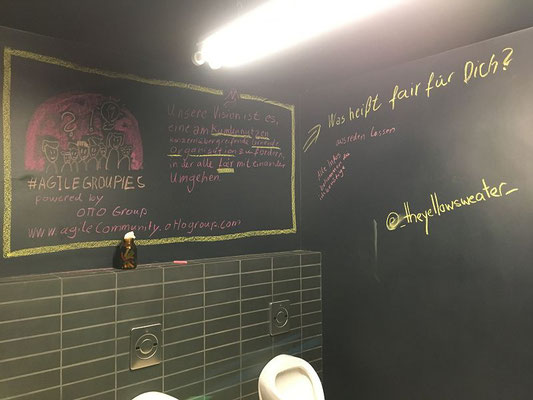 #AGILEGROUPIES
powered by
OTTO Group
www.agilecommunity.ottogroup.com
Unsere Vision ist es,
eine am Kundennutzen
lernende
Organisation zu fördern,
in der alle fair miteinander
umgehen.
Was heißt fair für Dich?
ausreden lassen
@_theyellowsweater_